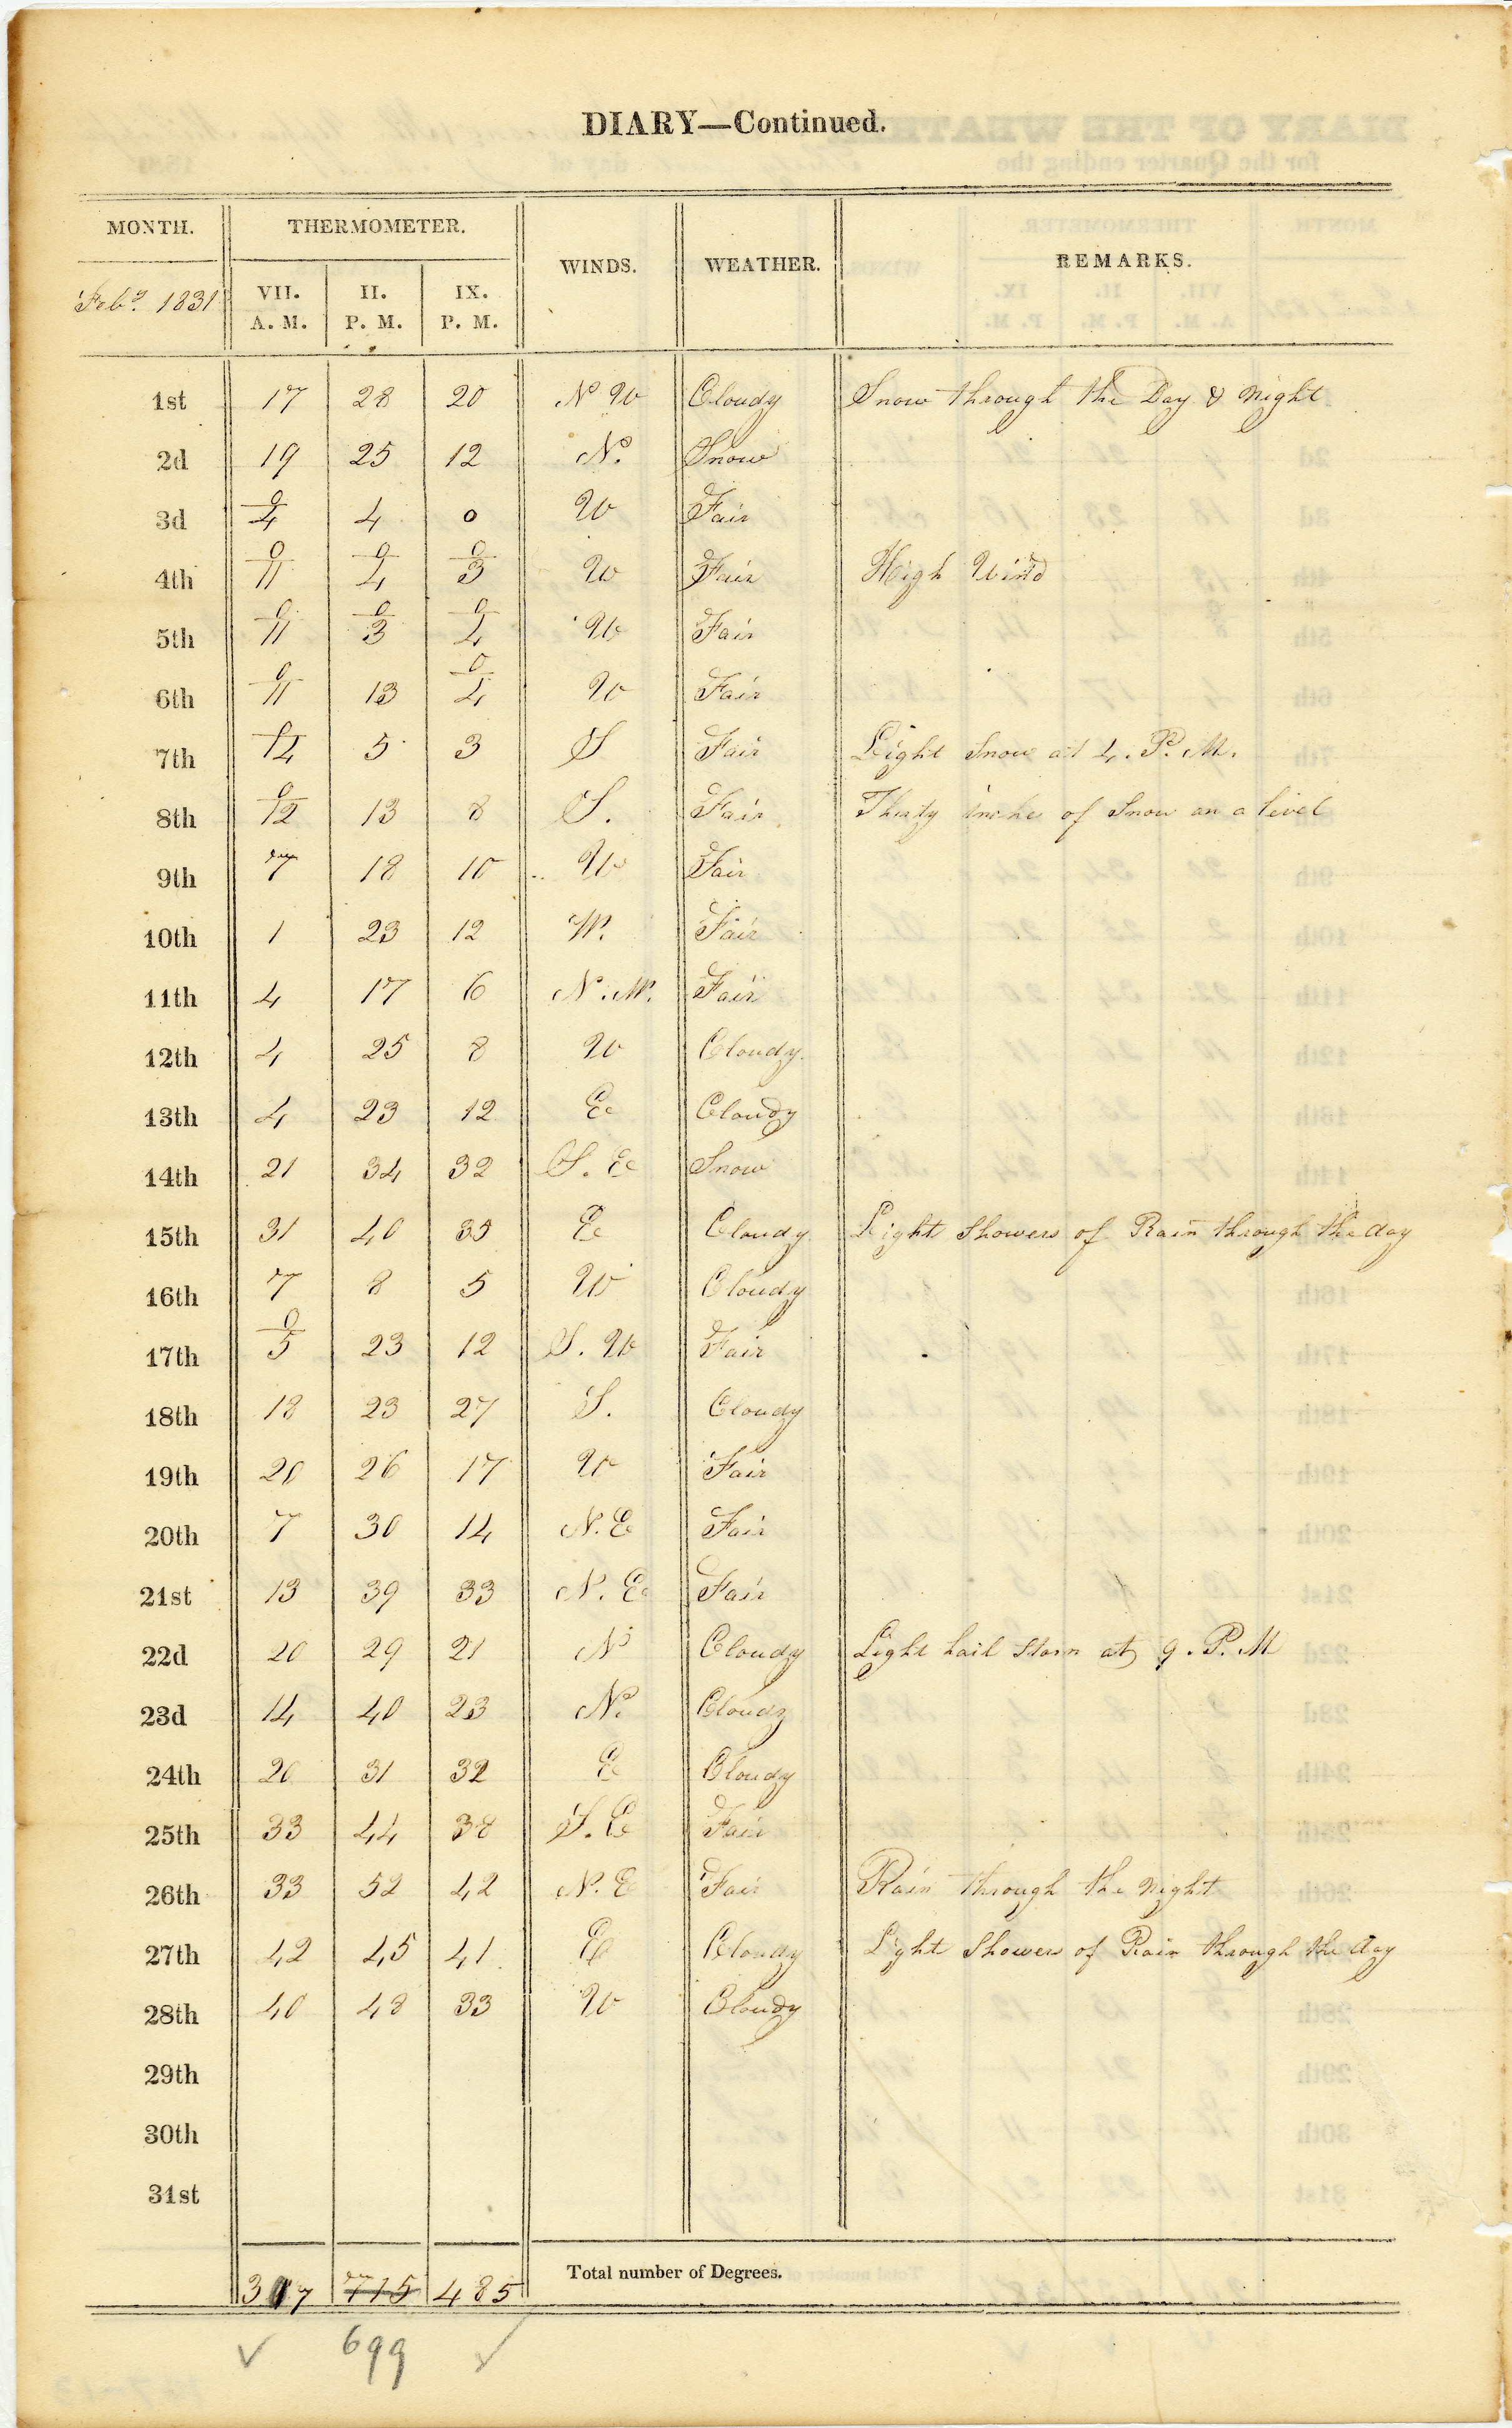 DIARY—Continued.
MONTH. THERMOMETER. WINDS. WEATHER. REMARKS.
Feby. 1831 VII. A. M. II. P. M. IX. P. M.
1st 17 28 20 N W Cloudy Snow through the Day & night
2d 19 25 12 N. Snow
3d 0/4 4 0 W Fair
4th 0/11 0/4 0/3 W Fair High Wind
5th 0/11 0/3 0/4 W Fair
6th 0/11 13 0/4 W Fair
7th 0/14 5 3 S Fair Light Snow at 4. P. M.
8th 0/12 13 8 S. Fair Thirty inches of Snow on a level
9th 7 18 10 W Fair
10th 1 23 12 W. Fair
11th 4 17 6 N. W. Fair
12th 4 25 8 W Cloudy
13th 4 23 12 E Cloudy
14th 21 34 32 S. E Snow
15th 31 40 35 E Cloudy Light Showers of Rain through the day
16th 7 8 5 W Cloudy
17th 0/5 23 12 S. W Fair
18th 18 23 27 S. Cloudy
19th 20 26 17 W Fair
20th 7 30 14 N. E Fair
21st 13 39 33 N. E Fair
22d 20 29 21 N Cloudy Light hail Storn at 9. P. M
23d 14 40 23 N. Cloudy
24th 20 31 32 E Cloudy
25th 33 44 38 S. E Fair
26th 33 52 42 N. E Fair Rain through the night
27th 42 45 41 E Cloudy Light Showers of Rain through the day
28th 40 48 33 W Cloudy
29th
30th
31st
307 715 485 Total number of Degrees.
699